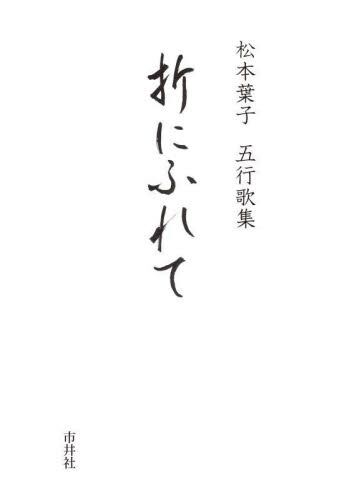 松本葉子 五行歌集
折にふれて
市井社